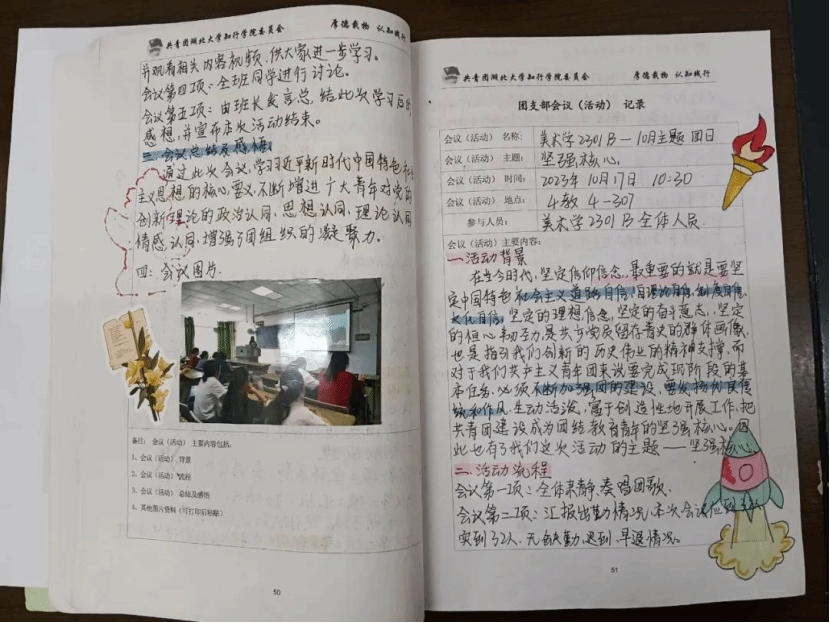 共青团湖北大学知行学院委员会 厚德载物 认知践行
并观看相关内容视频，供大家进一步学习。
会议第四项：全班同学进行讨论。
会议第五项：由班长发言总结此次学习后的
感想，并宣布本次活动结束。
三、会议总结及感悟
通过此次会议，学习习近平新时代中国特色社
主义思想的核心要义，不断增进广大青年对党的
创新理论的政治认同、思想认同、理论认同
情感认同，增强了团组织的凝聚力。
四：会议图片
备注：会议（活动）主要内容包括：
1、会议（活动）背景
2、会议（活动）流程
3、会议（活动）总结及感悟
4、其他图片资料（可打印后粘贴）
50
共青团湖北大学知行学院委员会 厚德载物 认知践行
团支部会议（活动） 记录
会议（活动） 名称： 美术学2301B—10月主题团日
会议（活动） 主题： 坚强核心
会议（活动） 时间： 2023年10月17日 10:30
会议（活动） 地点： 4教 4-307
参与人员： 美术学2301B全体人员
会议（活动）主要内容：
一、活动背景
在当今时代，坚定信仰信念，最重要的就是要坚
定中国特色社会主义道路自信、理论自信、制度自信、
文化自信，坚定的理想信念，坚定的奋斗意志，坚定
的恒心韧劲，是共产党员留存青史的群体画像，
也是指引我们创新的历史伟业的精神支撑，而
对于我们共产主义青年团来说要完成现阶段的基
本任务，必须不断加强团的建设，要发扬优良传
统和作风，生动活泼，富于创造性地开展工作，把
共青团建设成为团结教育青年的坚强核心。因
此也有了我们这次活动的主题——坚强核心
二、活动流程
会议第一项：全体肃静，奏唱团歌。
会议第二项：汇报出勤情况，本次会议应到32人
实到32人，无缺勤、迟到、早退情况。
51